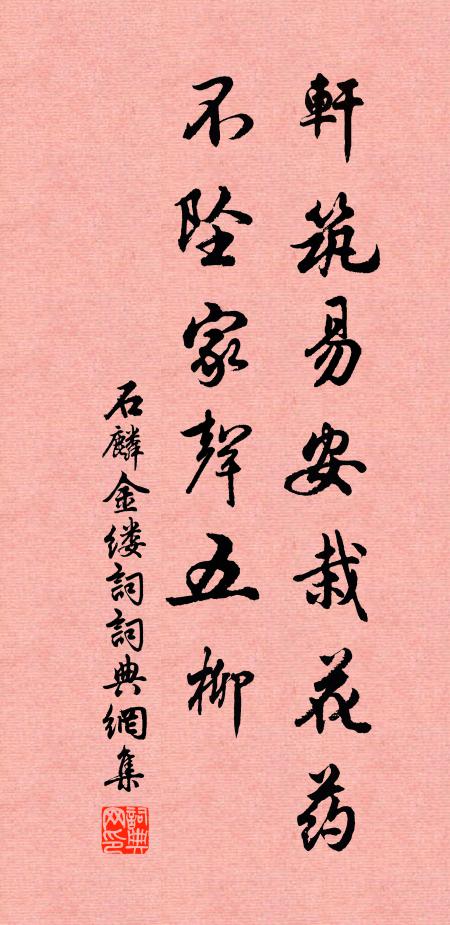 軒筑易安栽花药
不坠家聲五柳
石麟金缕詞詞典網集
詞典网印